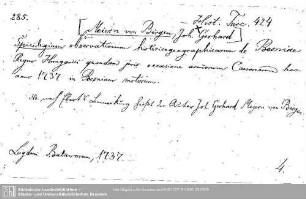 285.
Hist. Turc. 424
[Meiern von Bürgen, Joh. Gerhard]
Spicilegium observationum historico-geographicarum de Bosniae
Regno Hungarici quondam juris occasione armorum Caesareorum hoc
anno 1737 in Bosniam motorum.
Joh. Gerhard Meiern von Bürgen.
Lugduni Batavorum, 1737.
4.
Sächsische Landesbibliothek -
Staats- und Universitätsbibliothek Dresden